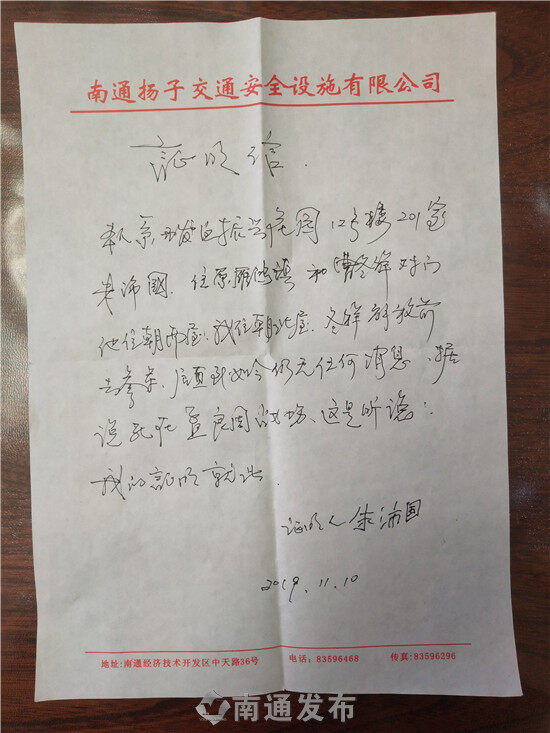 南通扬子交通安全设施有限公司
证明信.
本人系开发区振兴花园12号楼201室
朱沛国. 住原 镇 和曹冬祥对门
他住朝南屋. 我住朝北屋. 冬祥解放前
去 军, 到如今仍无任何消息, 据
说死在孟良固战场、这是听说:
我的证明就此.
证明人 朱沛国
2019.11.10
地址:南通经济技术开发区中天路36号 电话:83596468 传真:83596296
南通发布